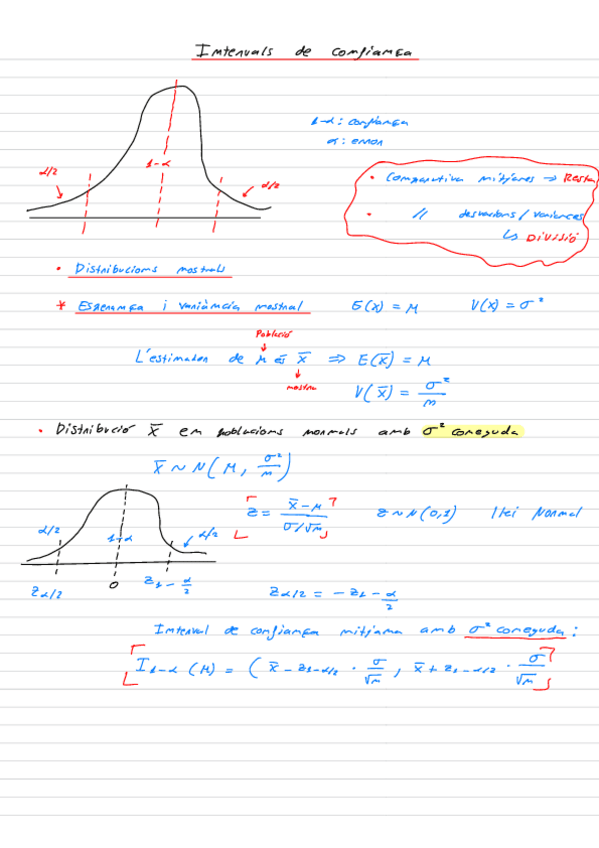 Intervals de confiança
1-α: confiança
α: error
α/2
1-α
α/2
• Comparativa mitjanes ⇒ Resta
• // desviacions / variances
↳ DIVISIÓ
• Distribucions mostrals
* Esperança i variància mostral E(x) = μ V(x) = σ²
Població
L'estimador de μ és x̄ ⇒ E(x̄) = μ
mostra
V(x̄) = σ²/n
• Distribució x̄ en poblacions normals amb σ² coneguda
x̄ ~ N(μ, σ²/n)
z = (x̄-μ)/(σ/√n) z ~ N(0,1) Llei Normal
α/2
1-α
α/2
Zα/2 0 Z1-α/2
Zα/2 = -Z1-α/2
Interval de confiança mitjana amb σ² coneguda:
I1-α (μ) = (x̄ - z1-α/2 · σ/√n, x̄ + z1-α/2 · σ/√n